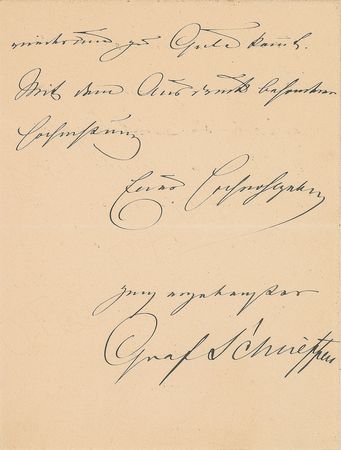 wiederum zu Gute kommt.
Mit dem Ausdruck besonderer
Hochachtung
Euer Hochwohlgeboren
ganz ergebenster
Graf Schlieffen